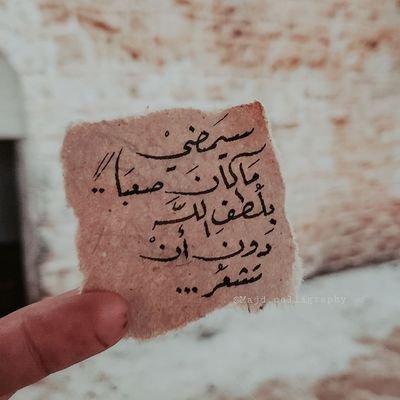 سيَمضيْ
مَاكانَ صعبَاً..
بلُطفِ اللَّه
دَونَ أنْ
تَشعُرْ...
@Majd_calligraphy